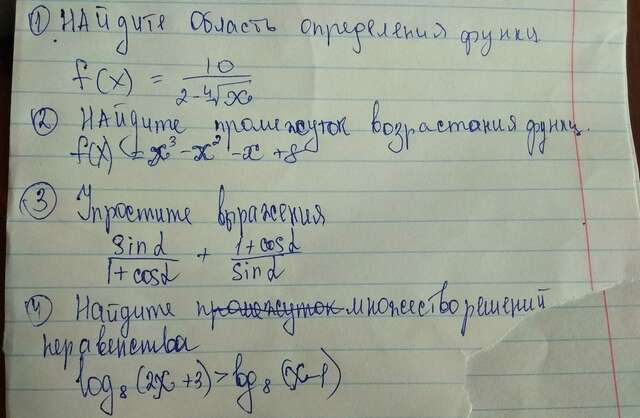 ① Найдите область определения функц
f(x) = 10 / (2 - ⁴√x)
② Найдите промежуток возрастания функц.
f(x) = x³ - x² - x + 8
③ Упростите выражения
sin α / (1 + cos α) + (1 + cos α) / sin α
④ Найдите промежуток множество решений
неравенства
log₈ (2x + 3) > log₈ (x - 1)